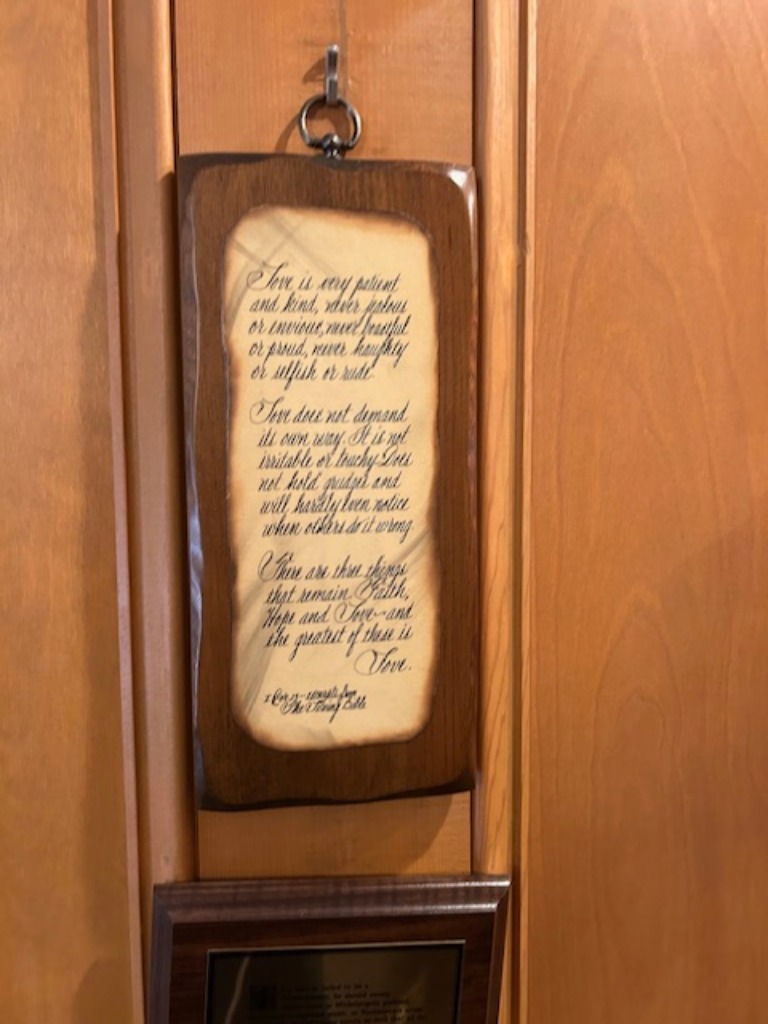 Love is very patient
and kind, never jealous
or envious, never boastful
or proud, never haughty
or selfish or rude.
Love does not demand
its own way. It is not
irritable or touchy. Does
not hold grudges and
will hardly even notice
when others do it wrong.
There are three things
that remain Faith,
Hope and Love—and
the greatest of these is
Love.
1 Cor 13 - excerpts from
The Living Bible
called to be a
he should sweep
as Michelangelo painted,